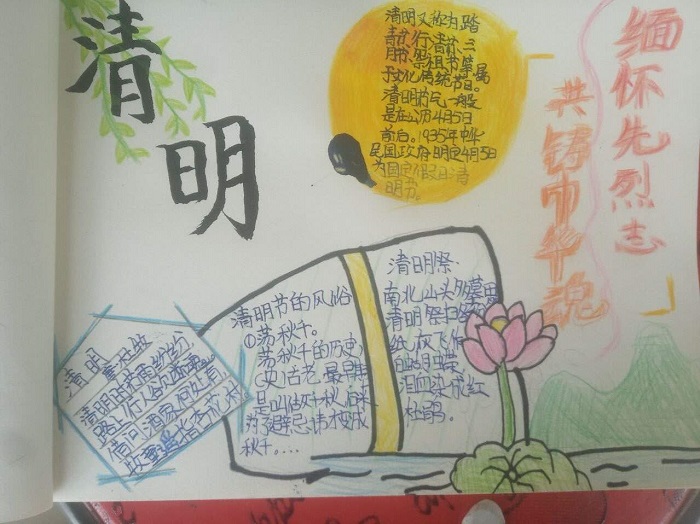 清明
清明又称为踏
青节、行清节、三
月节、祭祖节等,属
于文化传统节日。
清明节气一般
是在公历4月5日
前后。1935年中华
民国政府明定4月5日
为国定假日清
明节。
缅怀先烈志
共铸中华魂
清明节的风俗
①荡秋千。
荡秋千的历史
(史)古老,最早
是叫做千秋,后来
为了避忌讳,改成
秋千。...
清明祭.
南北山头多墓田
清明祭扫各
纸灰飞作
白蝴蝶
泪血染成红
杜鹃。
清明
清明时节雨纷纷,
路上行人欲断魂。
借问酒家何处有
牧童遥指杏花村。